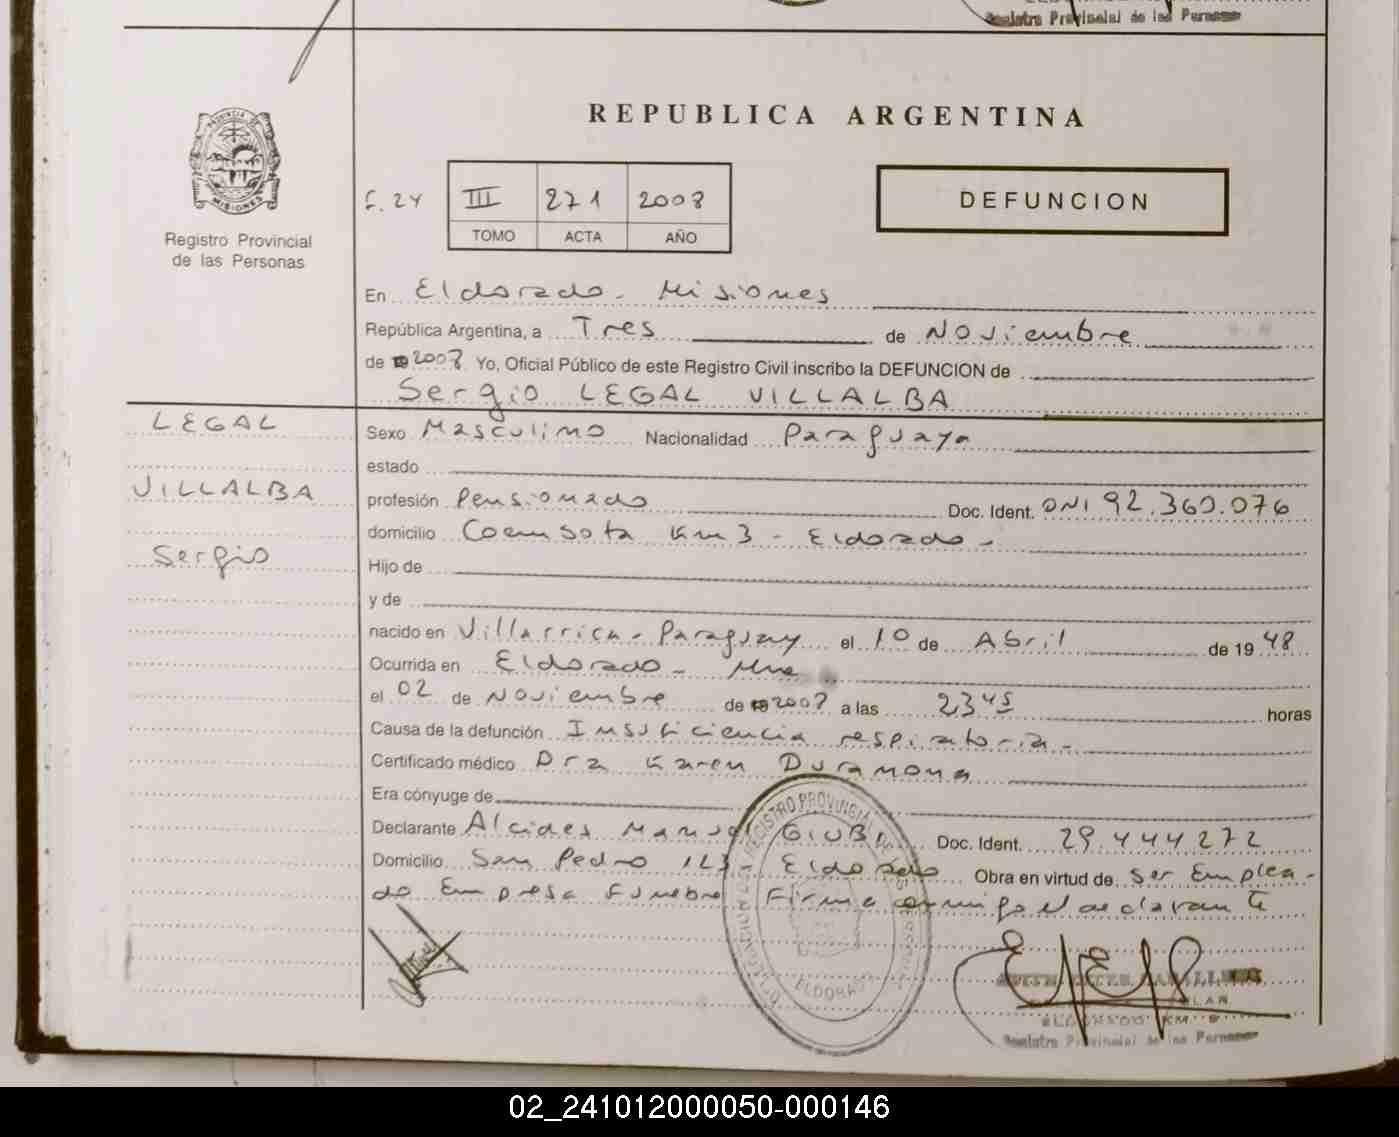 Registro Provincial de las Personas
REPUBLICA ARGENTINA
PROVINCIA DE
MISIONES
Registro Provincial
de las Personas
F. 24 III 271 2008
TOMO ACTA AÑO
DEFUNCION
En Eldorado - Misiones
República Argentina, a Tres de Noviembre
de 2008 Yo, Oficial Público de este Registro Civil inscribo la DEFUNCION de
Sergio LEGAL VILLALBA
LEGAL
VILLALBA
Sergio
Sexo Masculino Nacionalidad Paraguaya
estado
profesión Pensionado Doc. Ident. DNI 92.360.076
domicilio Km 3 - Eldorado -
Hijo de
y de
nacido en Villarrica - Paraguay el 10 de Abril de 1948
Ocurrida en Eldorado - Mnes
el 02 de Noviembre de 2008 a las 23 45 horas
Causa de la defunción Insuficiencia respiratoria -
Certificado médico Dra Karen Duramona
Era cónyuge de
Declarante Alcides Manuel GIUBI Doc. Ident. 29.444.272
Domicilio San Pedro 123 Eldorado Obra en virtud de Ser Emplea-
do Empresa Funebre Firma conmigo el declarante
ELDORADO
ELDORADO KM. 9
Registro Provincial de las Personas
02_241012000050-000146